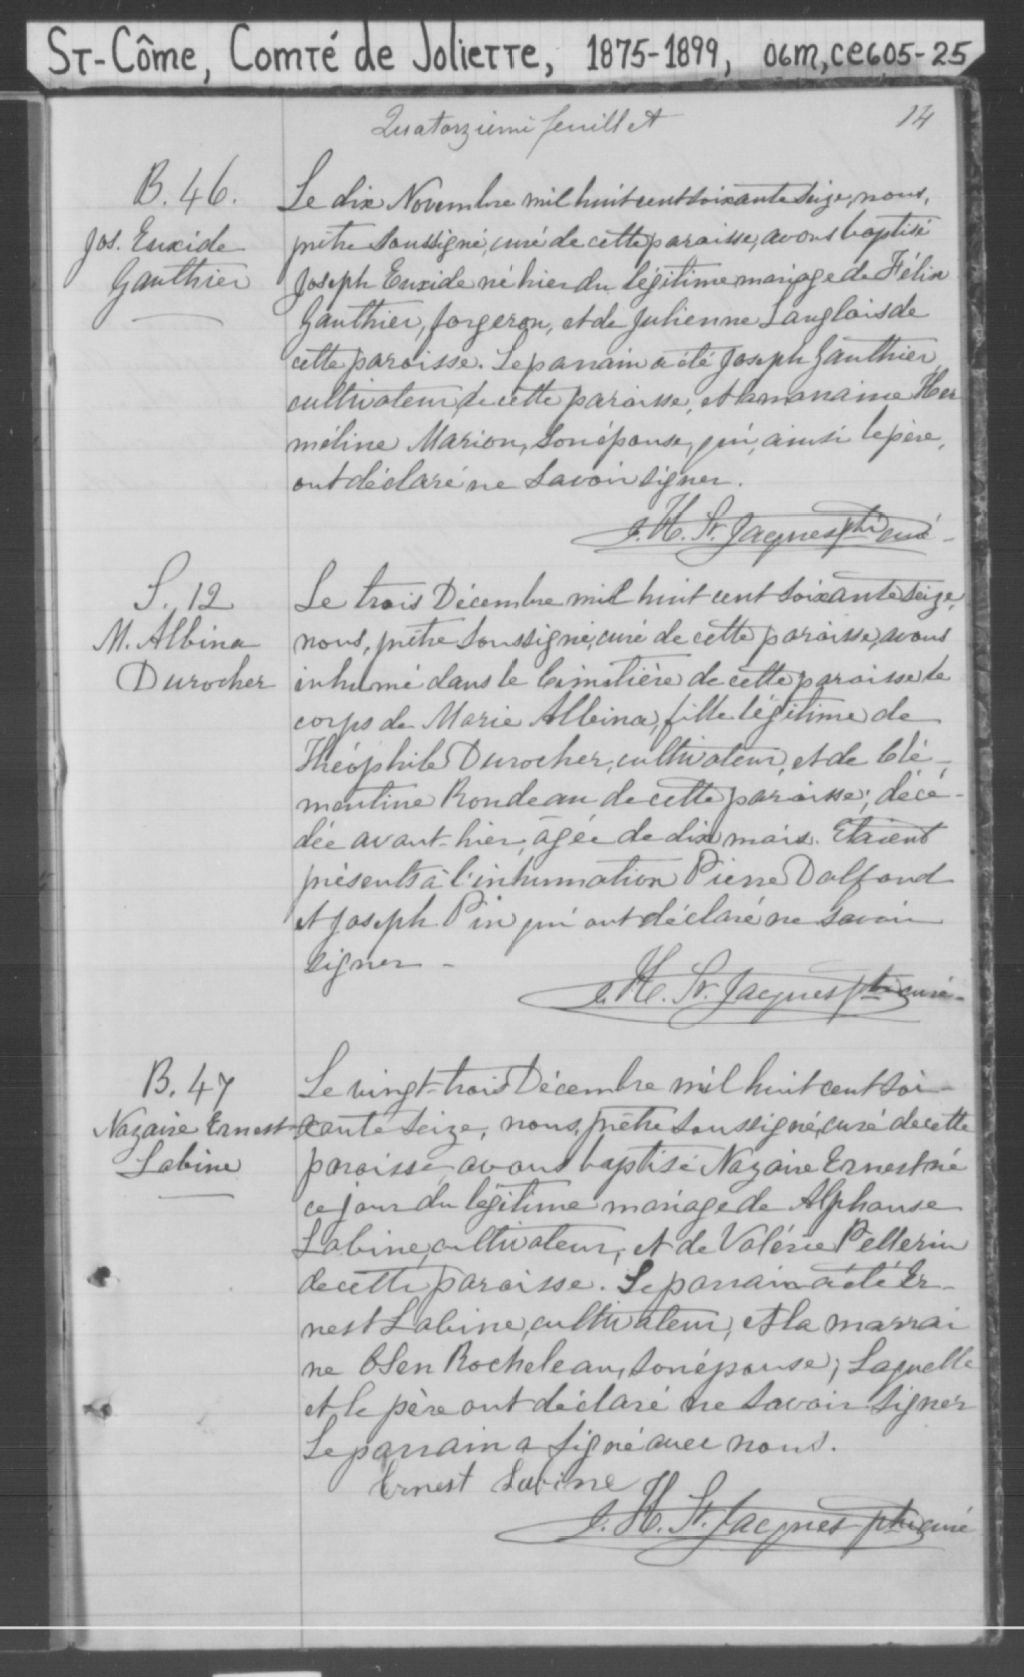 St-Côme, Comté de Joliette, 1875-1899, 06M,CE605-25
Quatorzième feuillet
14
B. 46.
Jos. Euxide
Gauthier
Le dix Novembre mil huit cent soixante seize, nous,
prêtre soussigné, curé de cette paroisse, avons baptisé
Joseph Euxide né hier du légitime mariage de Félix
Gauthier, forgeron, et de Julienne Langlois de
cette paroisse. Le parrain a été Joseph Gauthier
cultivateur de cette paroisse, et la marraine Her
méline Marion, son épouse, qui, ainsi le père,
ont déclaré ne savoir signer.
J. H. St. Jacques ptre curé
S. 12
M. Albina
Durocher
Le trois Décembre mil huit cent soixante seize,
nous, prêtre soussigné, curé de cette paroisse, avons
inhumé dans le cimetière de cette paroisse le
corps de Marie Albina, fille légitime de
Théophile Durocher, cultivateur, et de Clé-
mentine Rondeau de cette paroisse; décé-
dée avant-hier, âgée de dix mois. Etaient
présents à l'inhumation Pierre Dalfond
et Joseph Pin qui ont déclaré ne savoir
signer -
J. H. St. Jacques ptre curé
B. 47
Nazaire Ernest
Labine
Le vingt-trois Décembre mil huit cent soi-
xante seize, nous, prêtre soussigné, curé de cette
paroisse, avons baptisé Nazaire Ernest né
ce jour du légitime mariage de Alphonse
Labine, cultivateur, et de Valérie Pellerin
de cette paroisse. Le parrain a été Er-
nest Labine, cultivateur, et la marrai
ne Rocheleau, son épouse; laquelle
et le père ont déclaré ne savoir signer
Le parrain a signé avec nous.
Ernest Labine
J. H. St. Jacques ptre curé